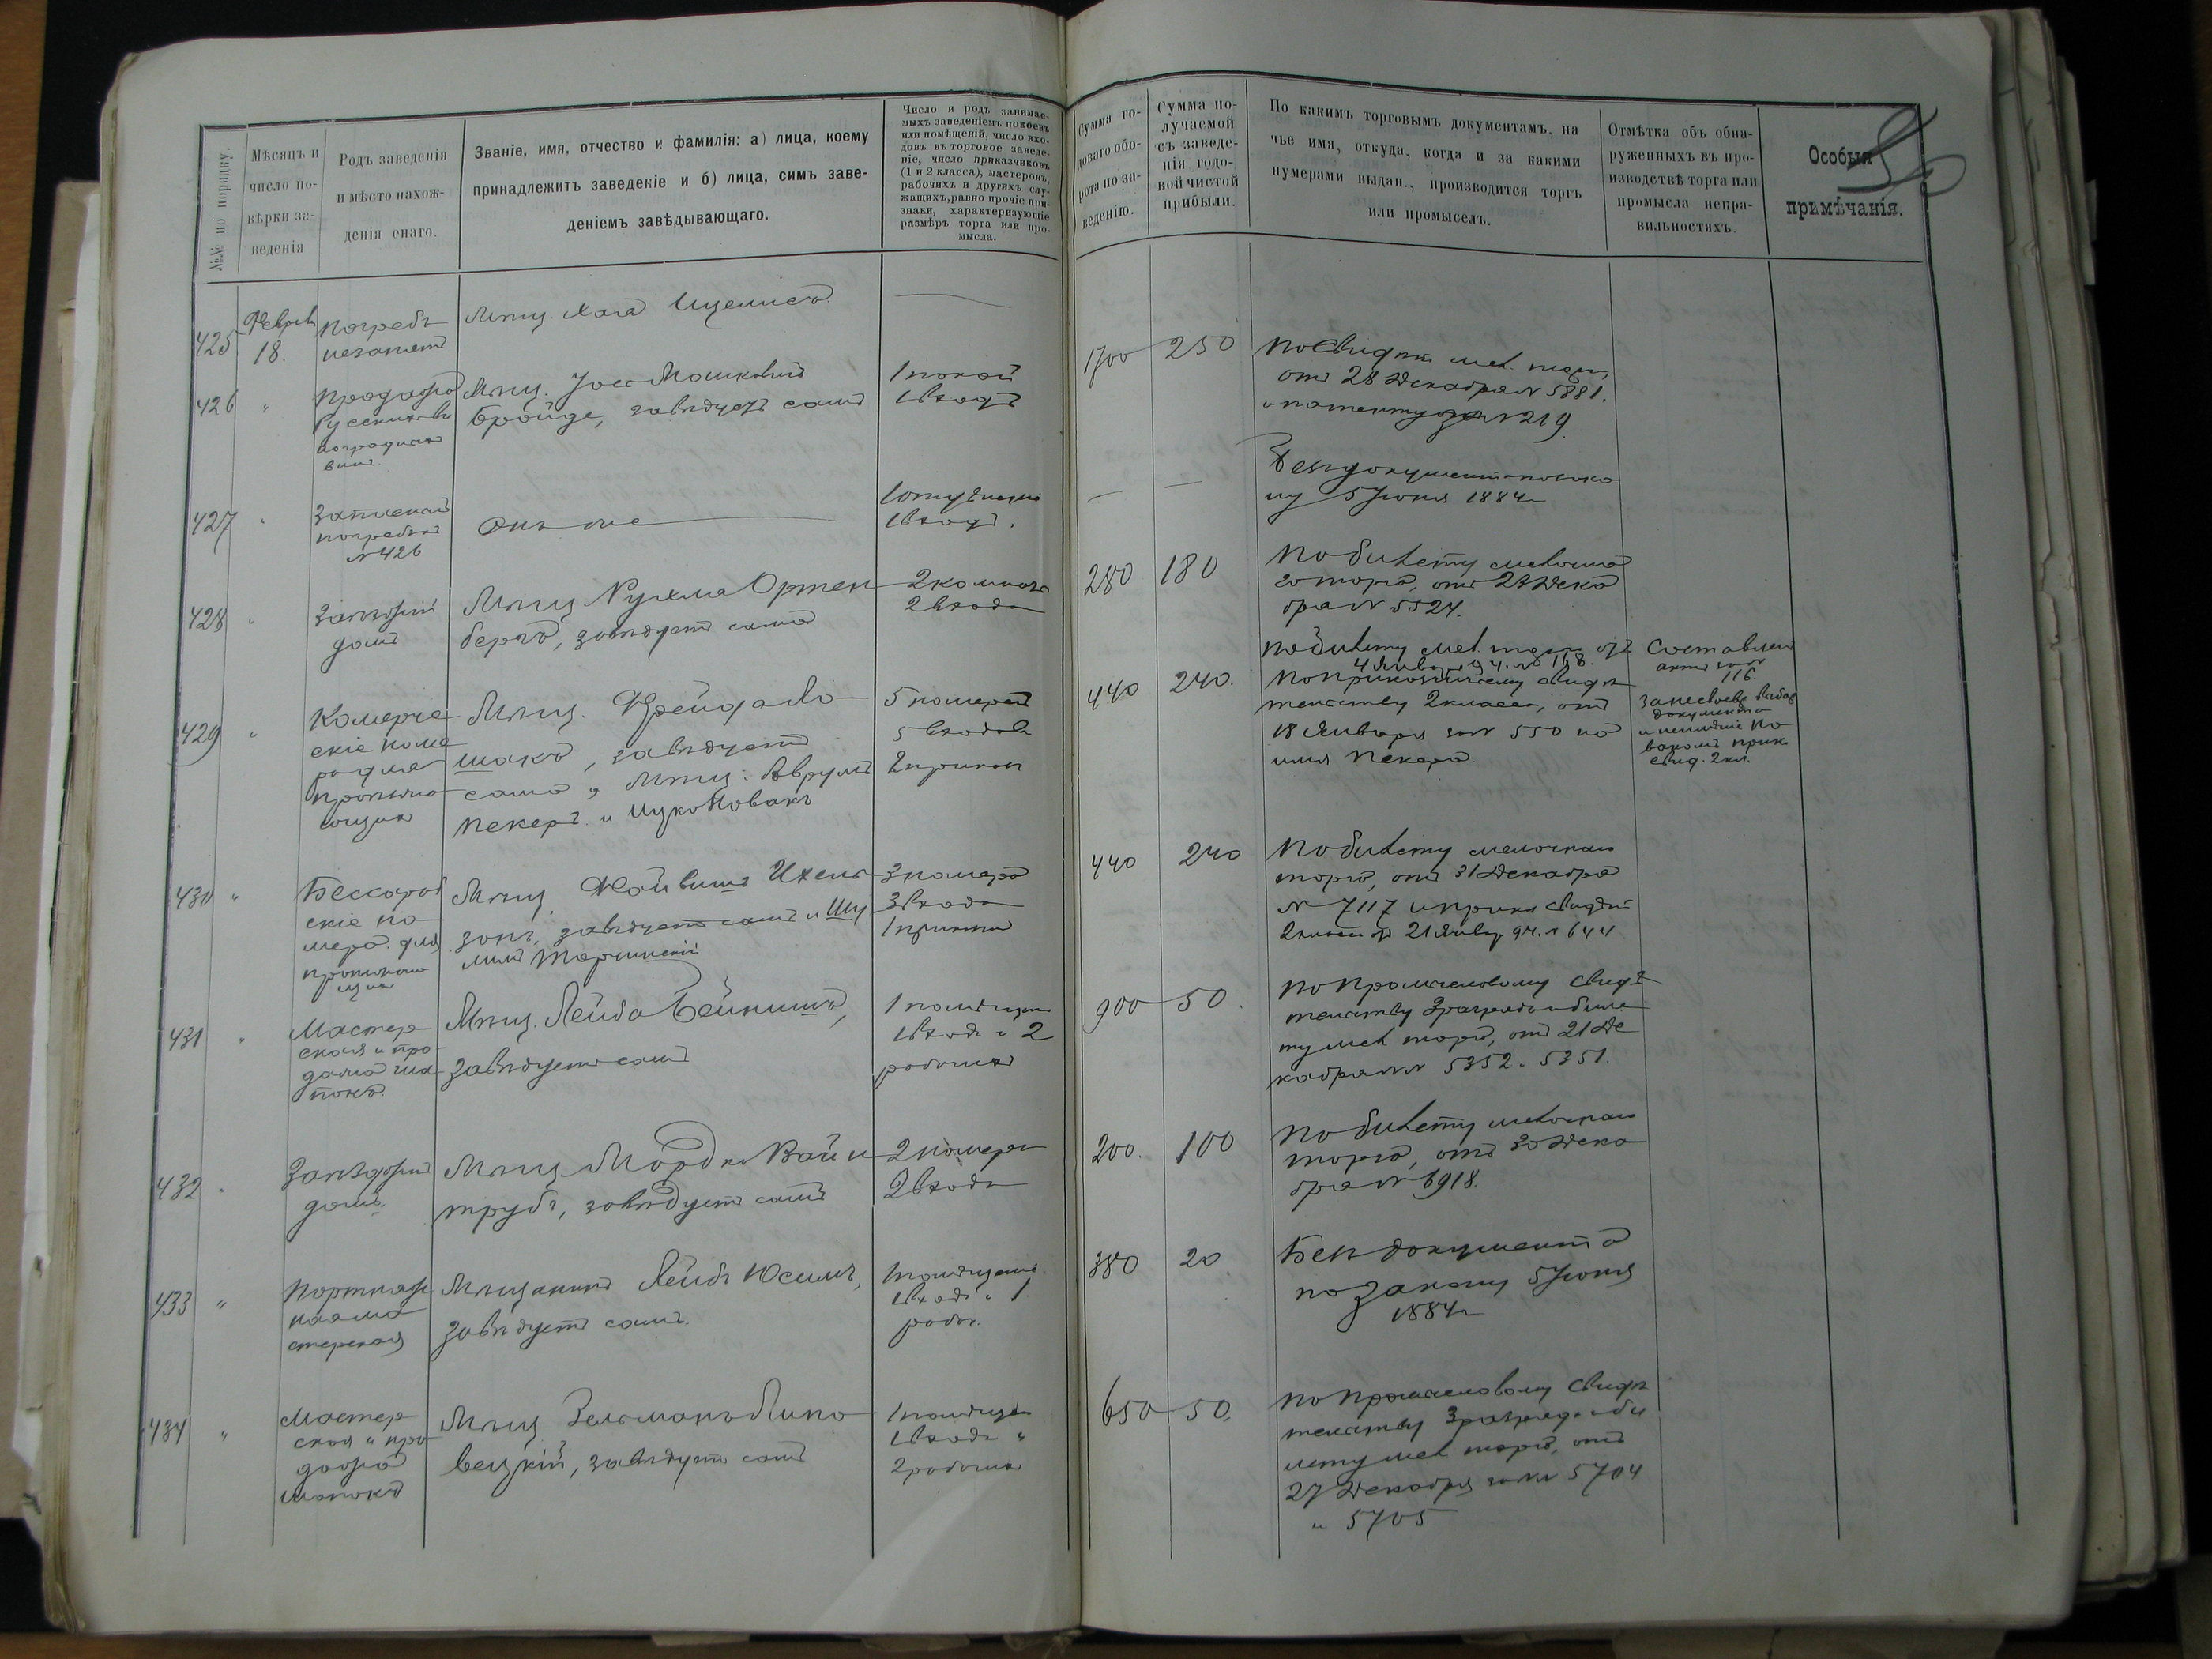 №№ по порядку.
Мѣсяцъ и
число по-
вѣрки за-
веденія
Родъ заведенія
и мѣсто нахож-
денія онаго.
Званіе, имя, отчество и фамилія: а) лица, коему
принадлежитъ заведеніе и б) лица, симъ заве-
деніемъ завѣдывающаго.
Число и родъ занимае-
мыхъ заведеніемъ покоевъ
или помѣщеній, число вхо-
довъ въ торговое заведе-
ніе, число приказчиковъ
(1 и 2 класса), мастеровъ,
рабочихъ и другихъ слу-
жащихъ, равно прочіе при-
знаки, характеризующіе
размѣръ торга или про-
мысла.
Сумма го-
доваго обо-
рота по за-
веденію.
Сумма по-
лучаемой
съ заведе-
нія годо-
вой чистой
прибыли.
По какимъ торговымъ документамъ, на
чье имя, откуда, когда и за какими
нумерами выдан., производится торгъ
или промыселъ.
Отмѣтка объ обна-
руженныхъ въ про-
изводствѣ торга или
промысла непра-
вильностяхъ.
Особыя
примѣчанія.
425
18.
Погребъ
незанятъ
Мѣщ. Хая
426
Продажа
Русскихъ ви
ноградныхъ
винъ.
Мѣщ. Іосъ Мошковичъ
Бройде, завѣдуетъ самъ
1 покой
1 входъ
1700
250
По Свидѣт. мел. торг.
отъ 28 Декабря № 5881.
и патенту за № 219
427
Запасный
погребъ къ
№ 426
Онъ же
1 входъ.
Безъ документа по зако
ну 5 Іюня 1884 г
428
Заѣзжій
домъ
Мѣщ Нухма Ортен
бергъ, завѣдуетъ сама
2 комнаты
2 входа
280
180
По билету мелочна
го торга, отъ 23 Дека
бря № 5524.
429
Комерче
скіе номе
ра для
пріѣзжа
ющихъ
Мѣщ. Фрейда Ло
шакъ, завѣдуетъ
сама и Мѣщ. Аврумъ
Пекеръ и Ицко Новакъ
5 номеровъ
5 входовъ
2 прик
440
240.
По билету мел. торга отъ
4 Января 94. № 118.
По приказчичьему свидѣ
тельству 2 класса, отъ
18 Января за № 550 на
имя Пекера
Составленъ
актъ за №
116.
документа
и неимѣніе Но
вакомъ прик.
свид. 2 кл.
430
Бессараб
скіе но
мера для
пріѣзжаю
щихъ
Мѣщ. Файвишъ Ихель
зонъ, завѣдуетъ самъ и Шу
лимъ
3 номера
3 входа
440
240
По билету мелочнаго
торга, отъ 31 Декабря
№ 7117 и прик. свидѣт
2 класса отъ 21 Январ 94. № 644
431
Мастер
ская и про
дажа ша
покъ.
Мѣщ. Лейба Бейнишъ,
завѣдуетъ самъ
1 помѣщен
1 входъ и 2
рабочихъ
900
50.
По Промысловому Свидѣ
тельству 3 разряда и биле
ту мел торга, отъ 21 Де
кабря №№ 5352 и 5351.
432
Заѣзжій
домъ.
Мѣщ Мордко Вайн
трубъ, завѣдуетъ самъ
2 номера
2 входа
200.
100
По билету мелочнаго
торга, отъ 30 Дека
бря № 6918.
433
Портняж
ная ма
стерская
Мѣщанинъ Лейбъ Юсимъ,
завѣдуетъ самъ.
1 помѣщеніе
1 входъ и 1
рабоч.
380
20
Безъ документа
по закону 5 Іюня
1884 г
434
Мастер
ская и про
дажа
шапокъ
Мѣщ Зельманъ Липо
вецкій, завѣдуетъ самъ
1 помѣщен
1 входъ и
2 рабочихъ
650
50.
По Промысловому Свидѣ
тельству 3 разряда и би
лету мел торга, отъ
27 Декабря за №№ 5704
и 5705